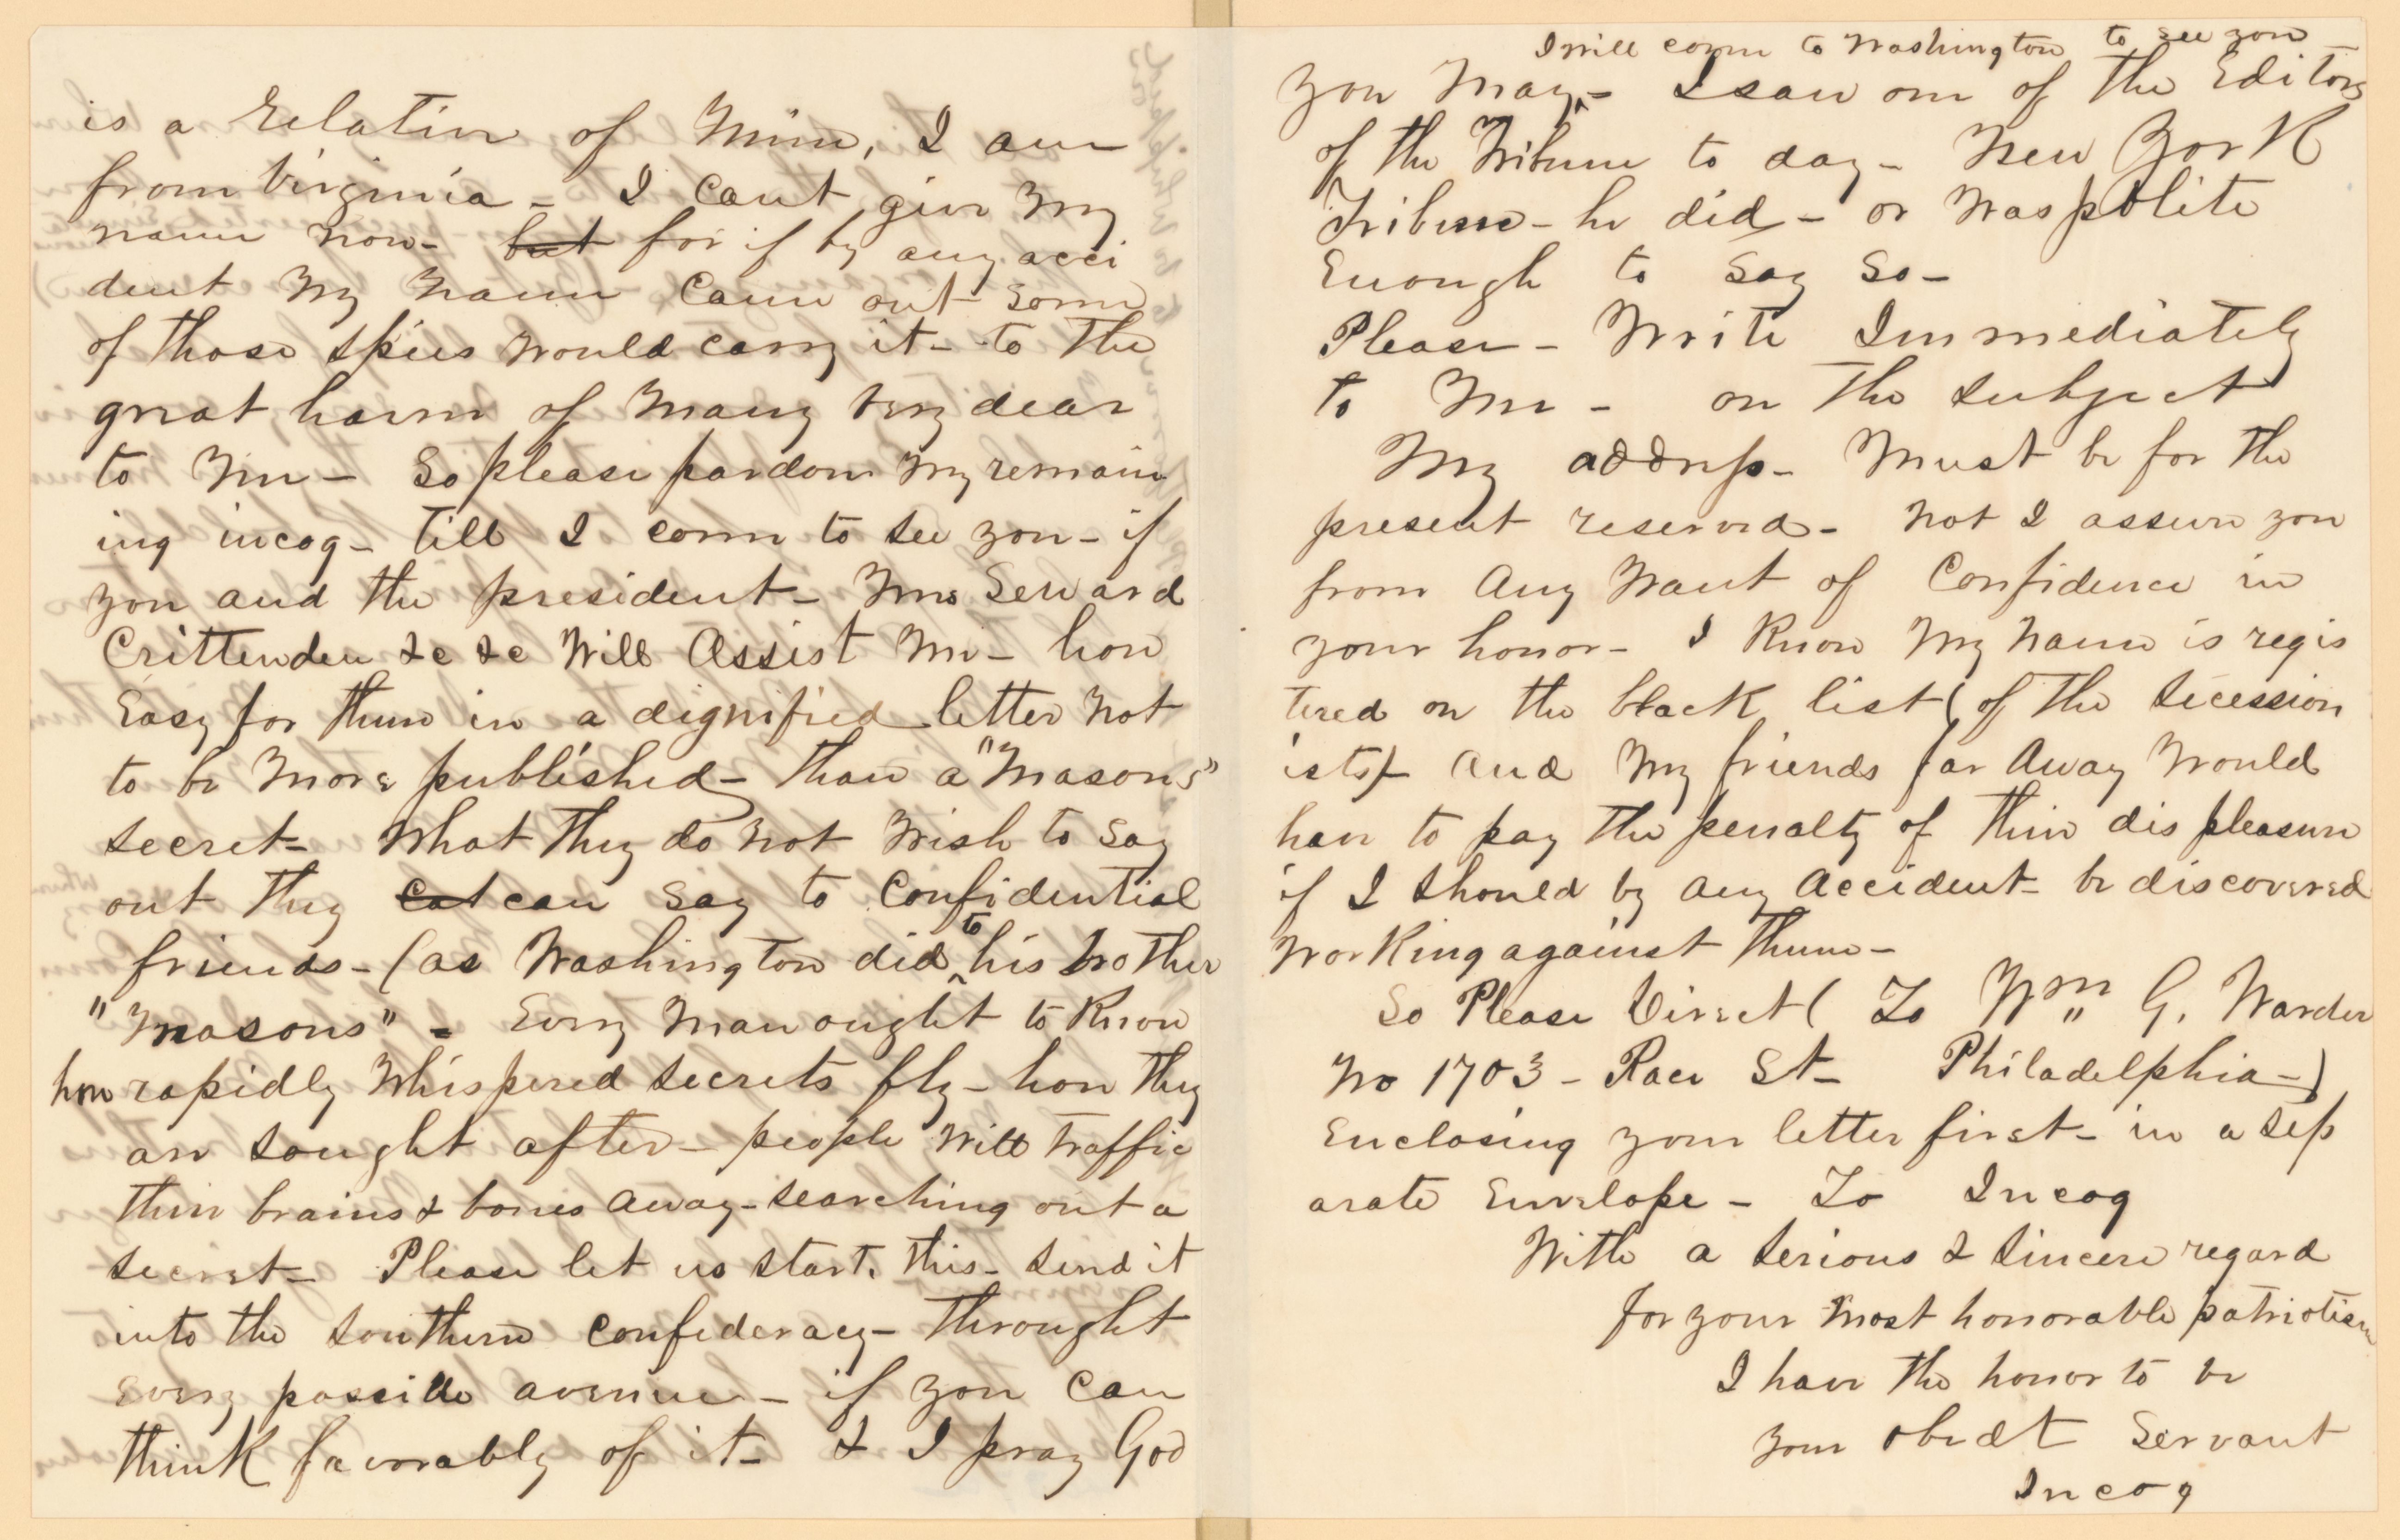 is a relative of mine, I am
from Virginia - I cant give my
name now - but for if by any acci
dent my name came out some
of those spies would carry it - to the
great harm of many very dear
to me - So please pardon my remain
ing incog - till I come to see you - if
you and the president - Wm Seward
Crittenden &c &c will assist me - how
Easy for them in a dignified letter not
to be more published - than a "Masons"
secret - What they do not wish to say
out they cat can say to confidential
friends - (as Washington did to his brother
"Masons" - Every man ought to know
how rapidly whispered secrets fly - how they
are sought after - people will traffic
their brains & bones away - searching out a
secret - Please let us start this - send it
into the southern confederacy - throught
every possible avenue - if you can
think favorably of it - & I pray God
I will come to Washington to see you
you may - I saw one of the Editors
of the Tribune to day - New York
Tribune - he did - or was polite
Enough to say so -
Please - Write Immediately
to me - on the subject
My address - Must be for the
present reserved - not I assure you
from any want of confidence in
your honor - I know my name is regis
tered on the black list (of the secession
ists) - and my friends far away would
have to pay the penalty of their displeasure
if I should by any accident - be discovered
working against them -
So Please Direct (To Wm G. Warder
No 1703 - Race St - Philadelphia -)
Enclosing your letter first - in a sep
arate Envelope - To Incog
With a serious & sincere regard
for your most honorable patriotism
I have the honor to be
your obedt servant
Incog